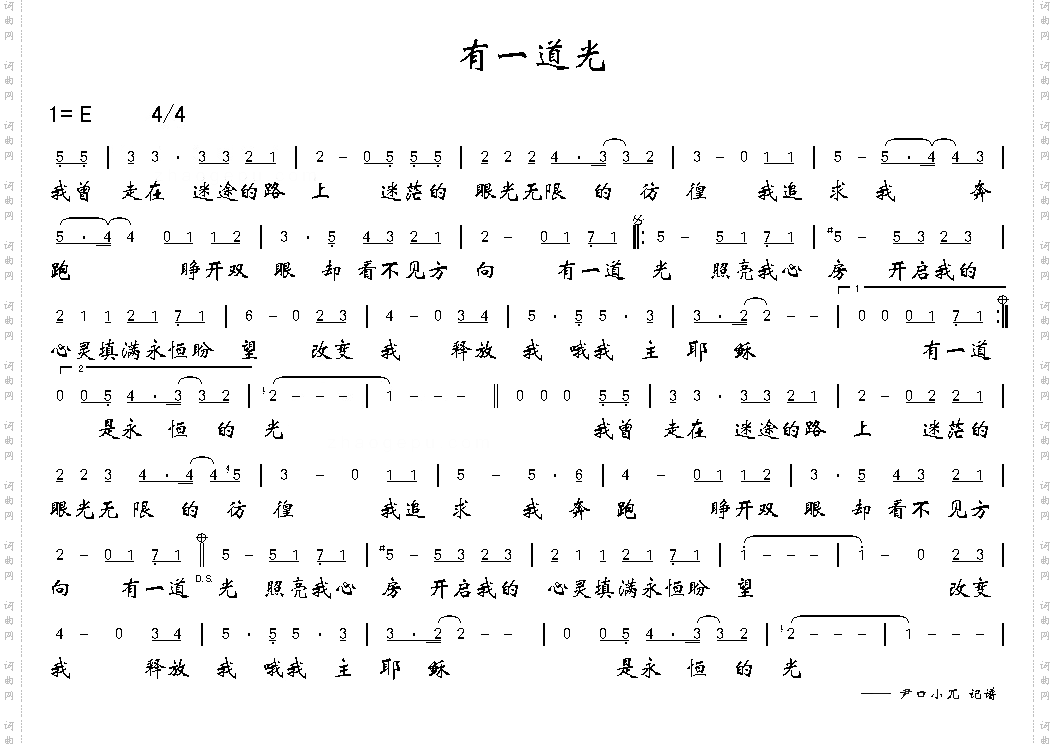 有一道光
1= E 4/4
5 5 | 3 3 · 3 3 2 1 | 2 - 0 5 5 5 | 2 2 2 4 · 3 3 2 | 3 - 0 1 1 | 5 - 5 · 4 4 3 |
我曾 走在 迷途的路 上 迷茫的 眼光无限 的 彷 徨 我追 求 我 奔
5 · 4 4 0 1 1 2 | 3 · 5 4 3 2 1 | 2 - 0 1 7 1 𝄆 5 - 5 1 7 1 | #5 - 5 3 2 3 |
跑 睁开双 眼 却 看不见方 向 有一道 光 照亮我心 房 开启我的
2 1 1 2 1 7 1 | 6 - 0 2 3 | 4 - 0 3 4 | 5 · 5 5 · 3 | 3 · 2 2 - - | 1 0 0 0 1 7 1 𝄇
心灵填满永恒盼 望 改变 我 释放 我 哦我 主 耶 稣 有一道
2
0 0 5 4 · 3 3 2 | 2 - - - | 1 - - - ‖ 0 0 0 5 5 | 3 3 · 3 3 2 1 | 2 - 0 2 2 1 |
是永 恒 的 光 我曾 走在 迷途的路 上 迷茫的
2 2 3 4 · 4 4 5 | 3 - 0 1 1 | 5 - 5 · 6 | 4 - 0 1 1 2 | 3 · 5 4 3 2 1 |
眼光无 限 的 彷 徨 我追 求 我 奔 跑 睁开双 眼 却 看不 见方
2 - 0 1 7 1 ‖ 5 - 5 1 7 1 | #5 - 5 3 2 3 | 2 1 1 2 1 7 1 | 1 - - - | 1 - 0 2 3 |
向 有一道 D.S. 光 照亮我心 房 开启我的 心灵填满永恒盼 望 改变
4 - 0 3 4 | 5 · 5 5 · 3 | 3 · 2 2 - - | 0 0 5 4 · 3 3 2 | 2 - - - | 1 - - - |
我 释放 我 哦我 主 耶 稣 是永 恒 的 光
—— 尹口小兀 记谱